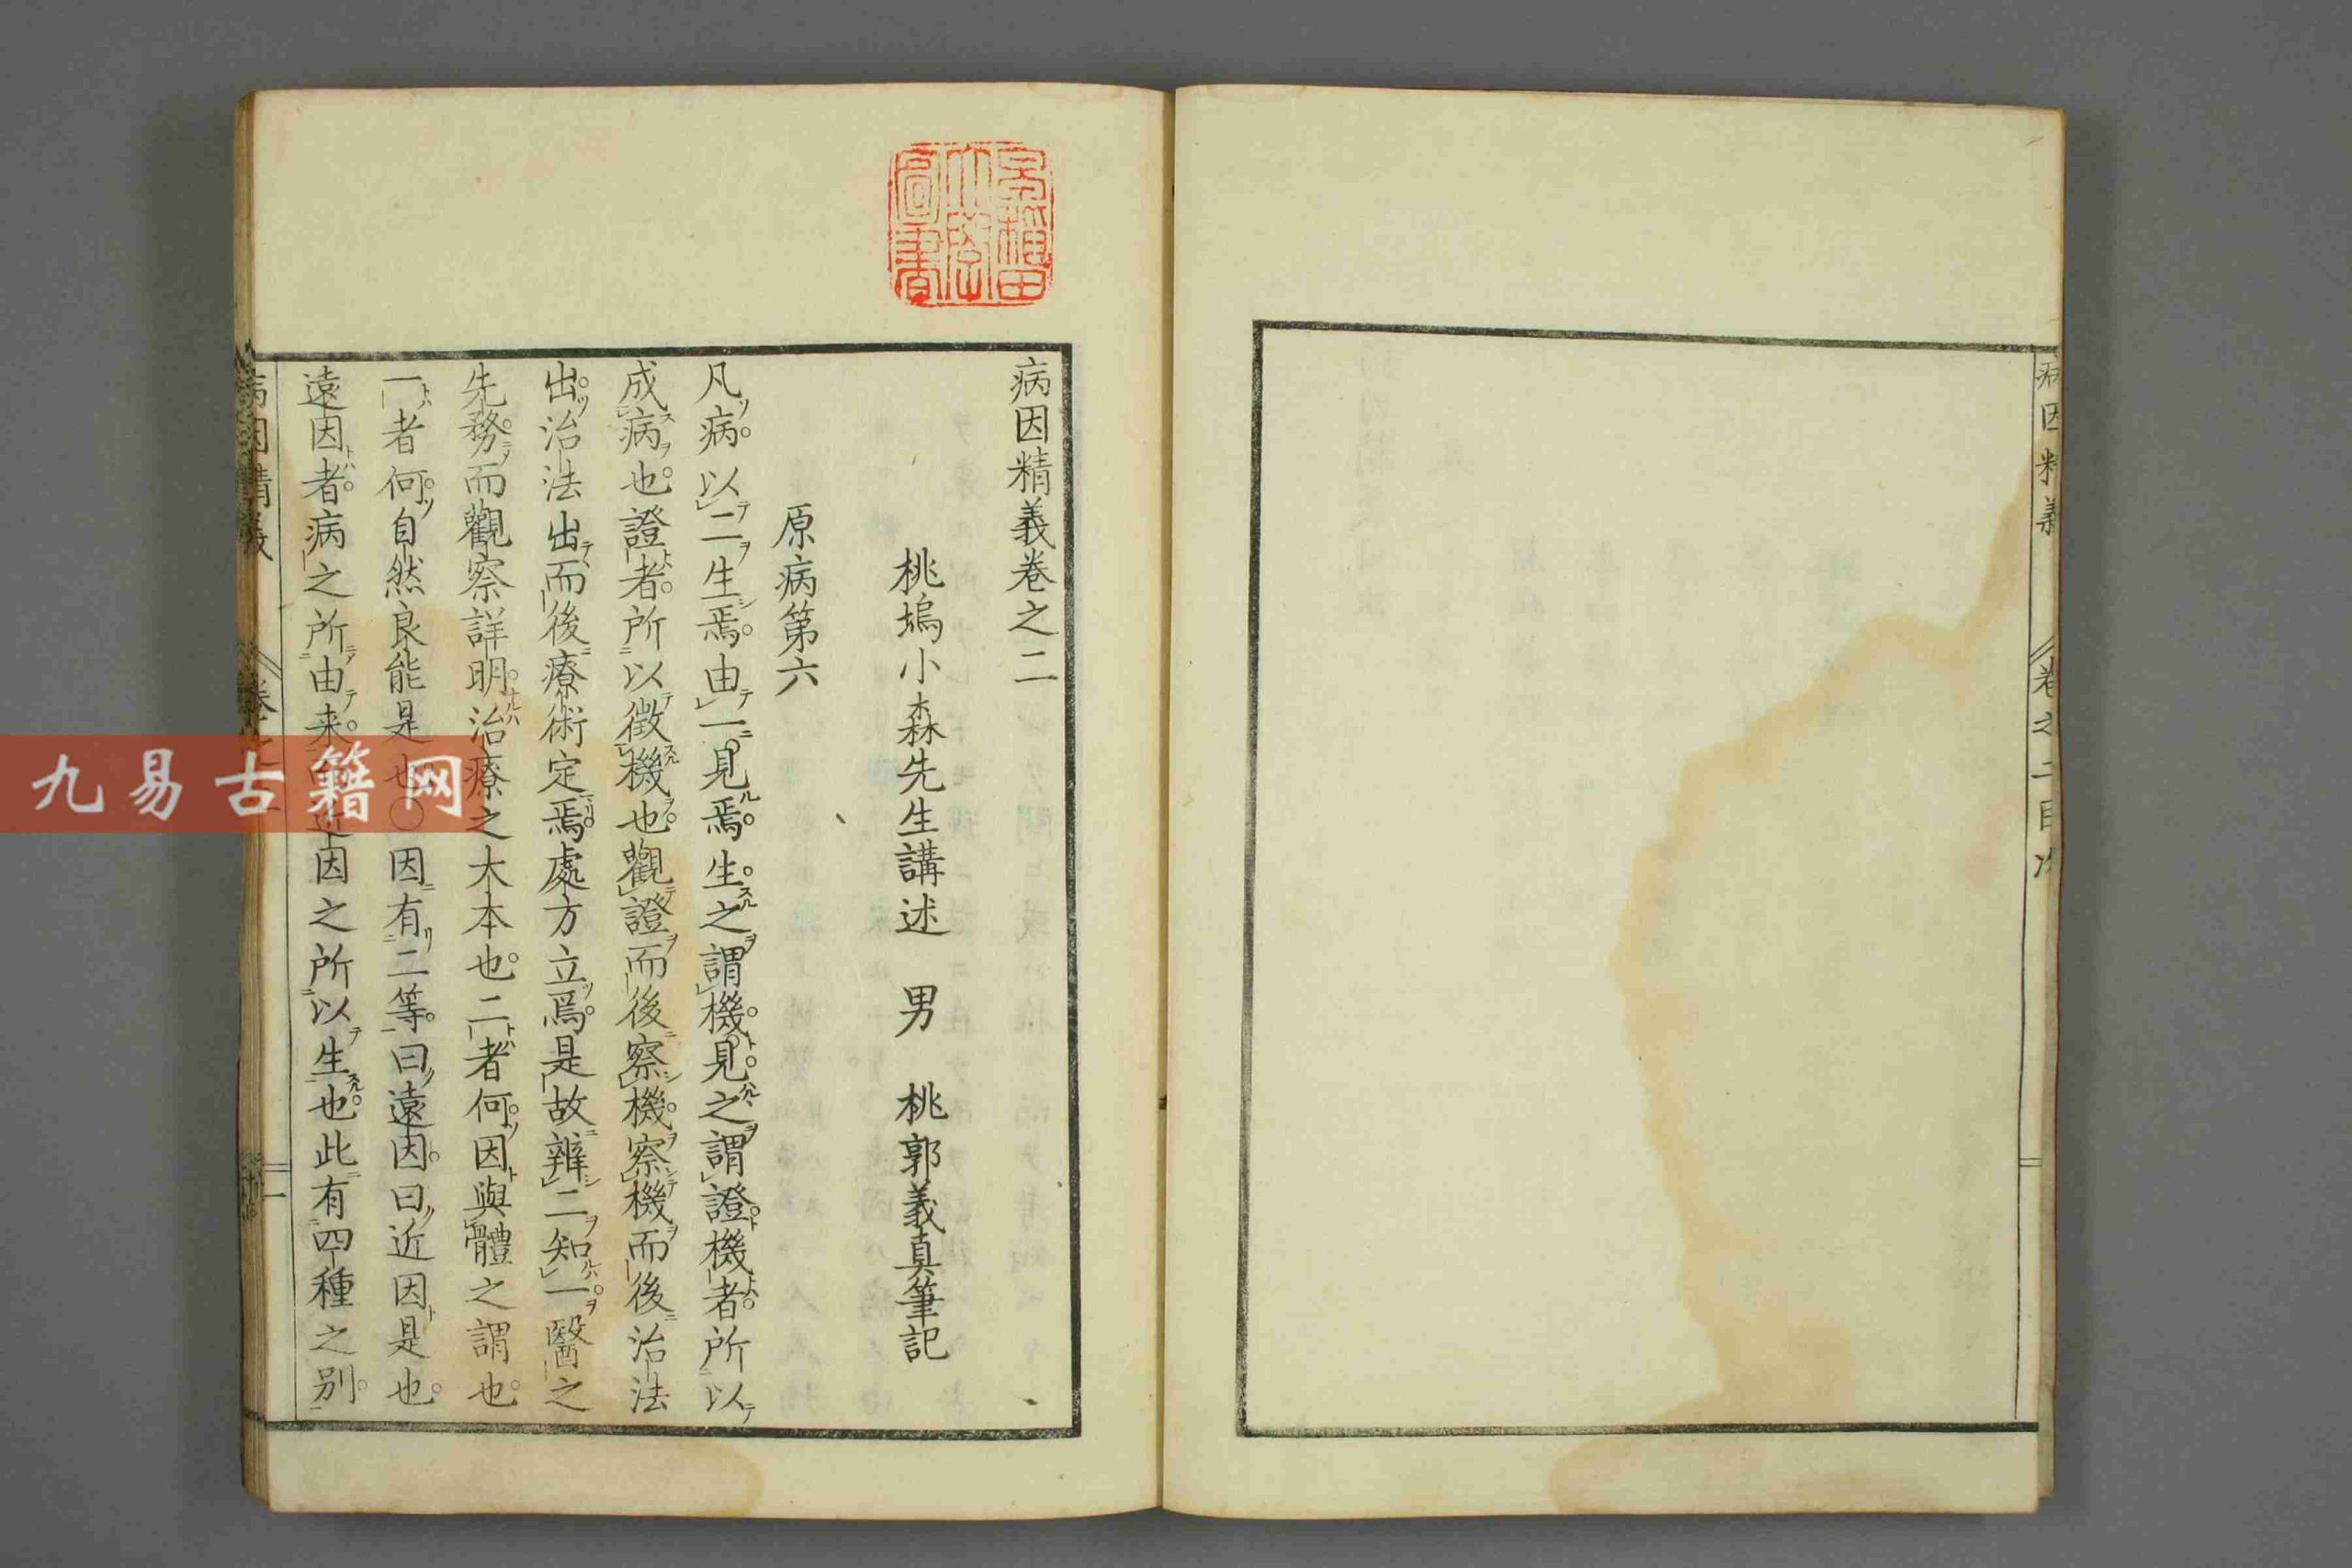 病因精義
卷之二目次
早稲田
大學
圖書
病因精義卷之二
桃塢小森先生講述　男　桃郭義真筆記
原病第六
凡病以二生焉由一見焉生之謂機見之謂證機者所以
成病也證者所以徴機也觀證而後察機察機而後治法
出治法出而後療術定焉處方立焉是故辨二知一醫之
先務而觀察詳明治療之大本也二者何因與體之謂也
一者何自然良能是也〇因有二等曰遠因曰近因是也
遠因者病之所由来近因之所以生也此有四種之別
病因精義
卷之二
九易古籍网